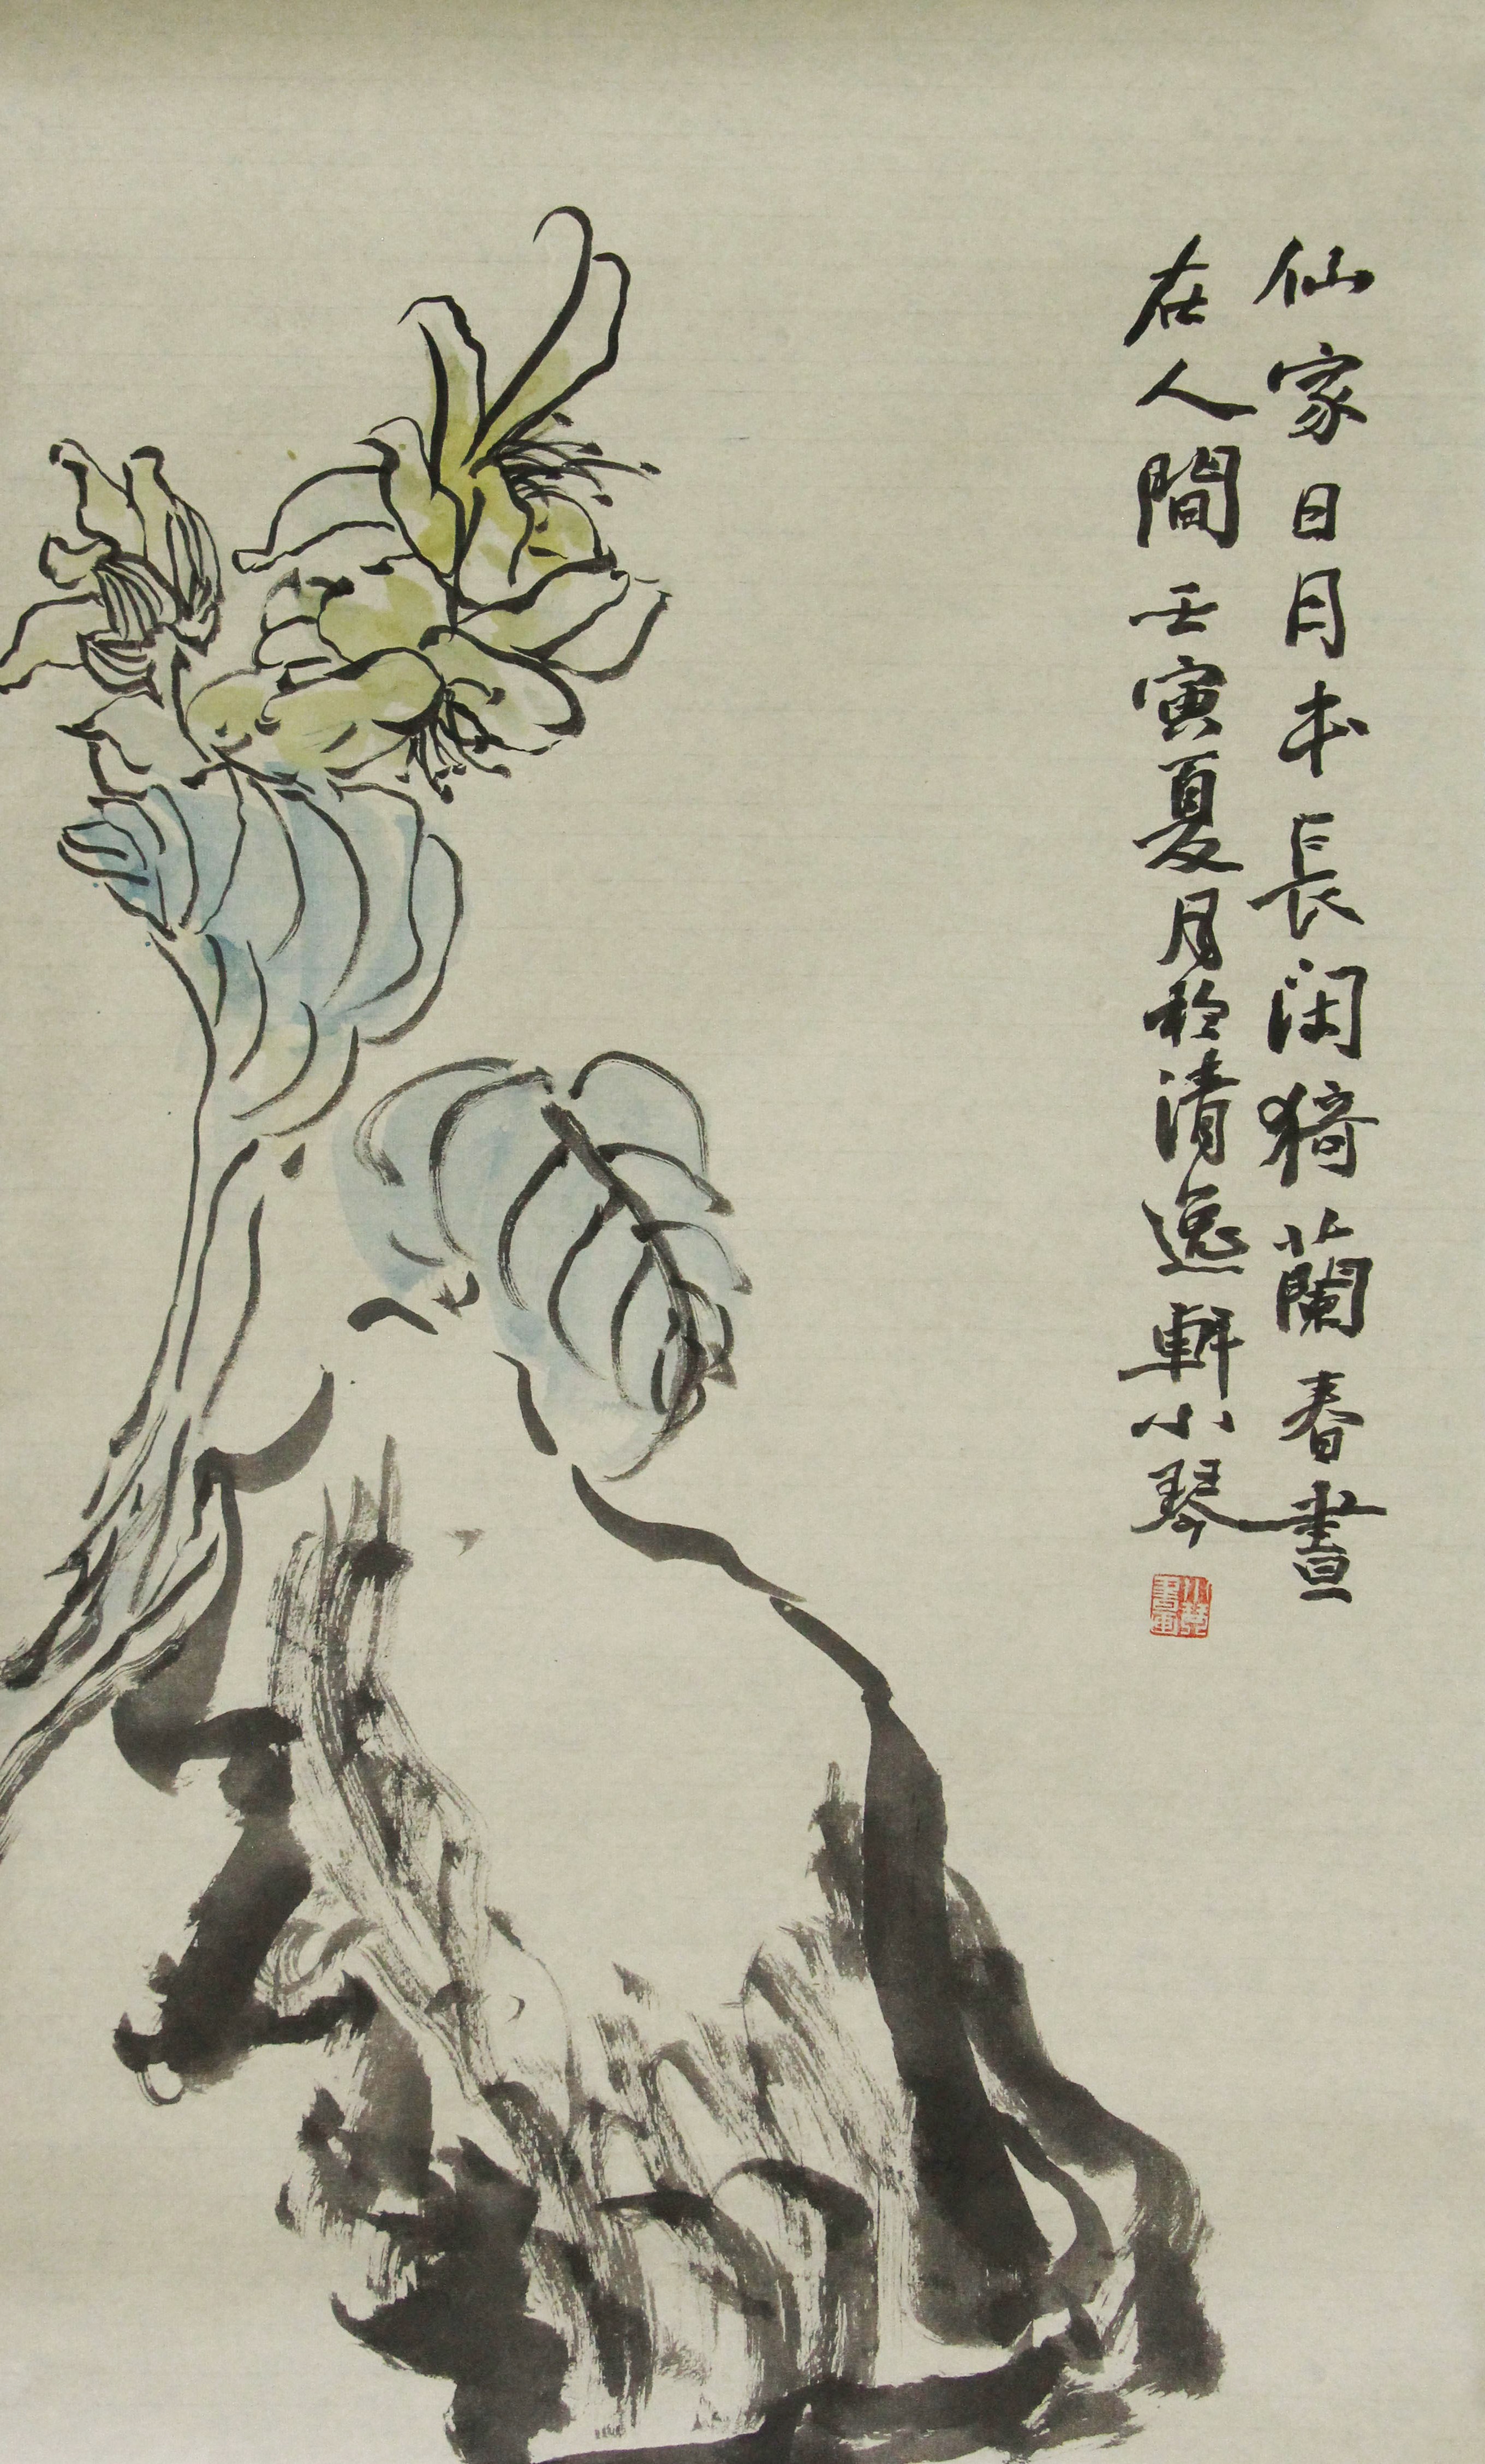 仙家日月本長閑猗蘭春晝
在人間 壬寅夏月於清逸軒小琴
小琴書畫